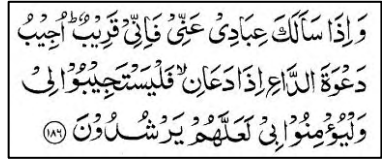 وَاِذَا سَاَلَكَ عِبَادِىْ عَنِّىْ فَاِنِّىْ قَرِيْبٌ ؕ اُجِيْبُ
دَعْوَةَ الدَّاعِ اِذَا دَعَانِ ۙ فَلْيَسْتَجِيْبُوْا لِىْ
وَلْيُؤْمِنُوْا بِىْ لَعَلَّهُمْ يَرْشُدُوْنَ ﴿۱۸۶﴾